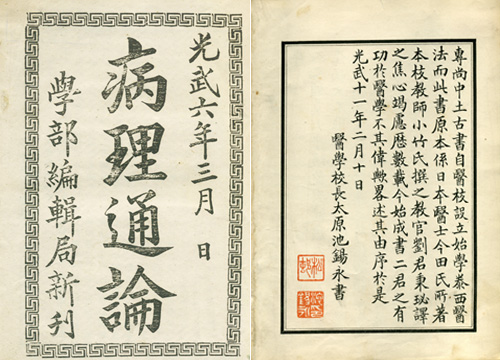 光武六年三月 日
病理通論
學部編輯局新刊
專尚中土古書自醫校設立始學泰西醫
法而此書原本係日本醫士今田氏所著
本校教師小竹氏撰之教官劉君秉珌譯
之焦心竭慮歷數載今始成書二君之有
功於醫學不其偉歟畧述其由序於是
光武十一年二月十日
醫學校長太原池錫永書